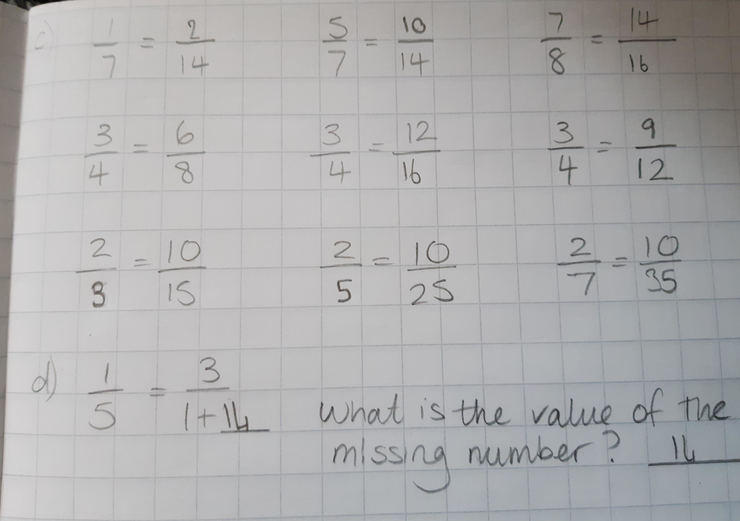 c) 1/7 = 2/14 5/7 = 10/14 7/8 = 14/16
3/4 = 6/8 3/4 = 12/16 3/4 = 9/12
2/3 = 10/15 2/5 = 10/25 2/7 = 10/35
d) 1/5 = 3/1+14 What is the value of the
missing number? 14